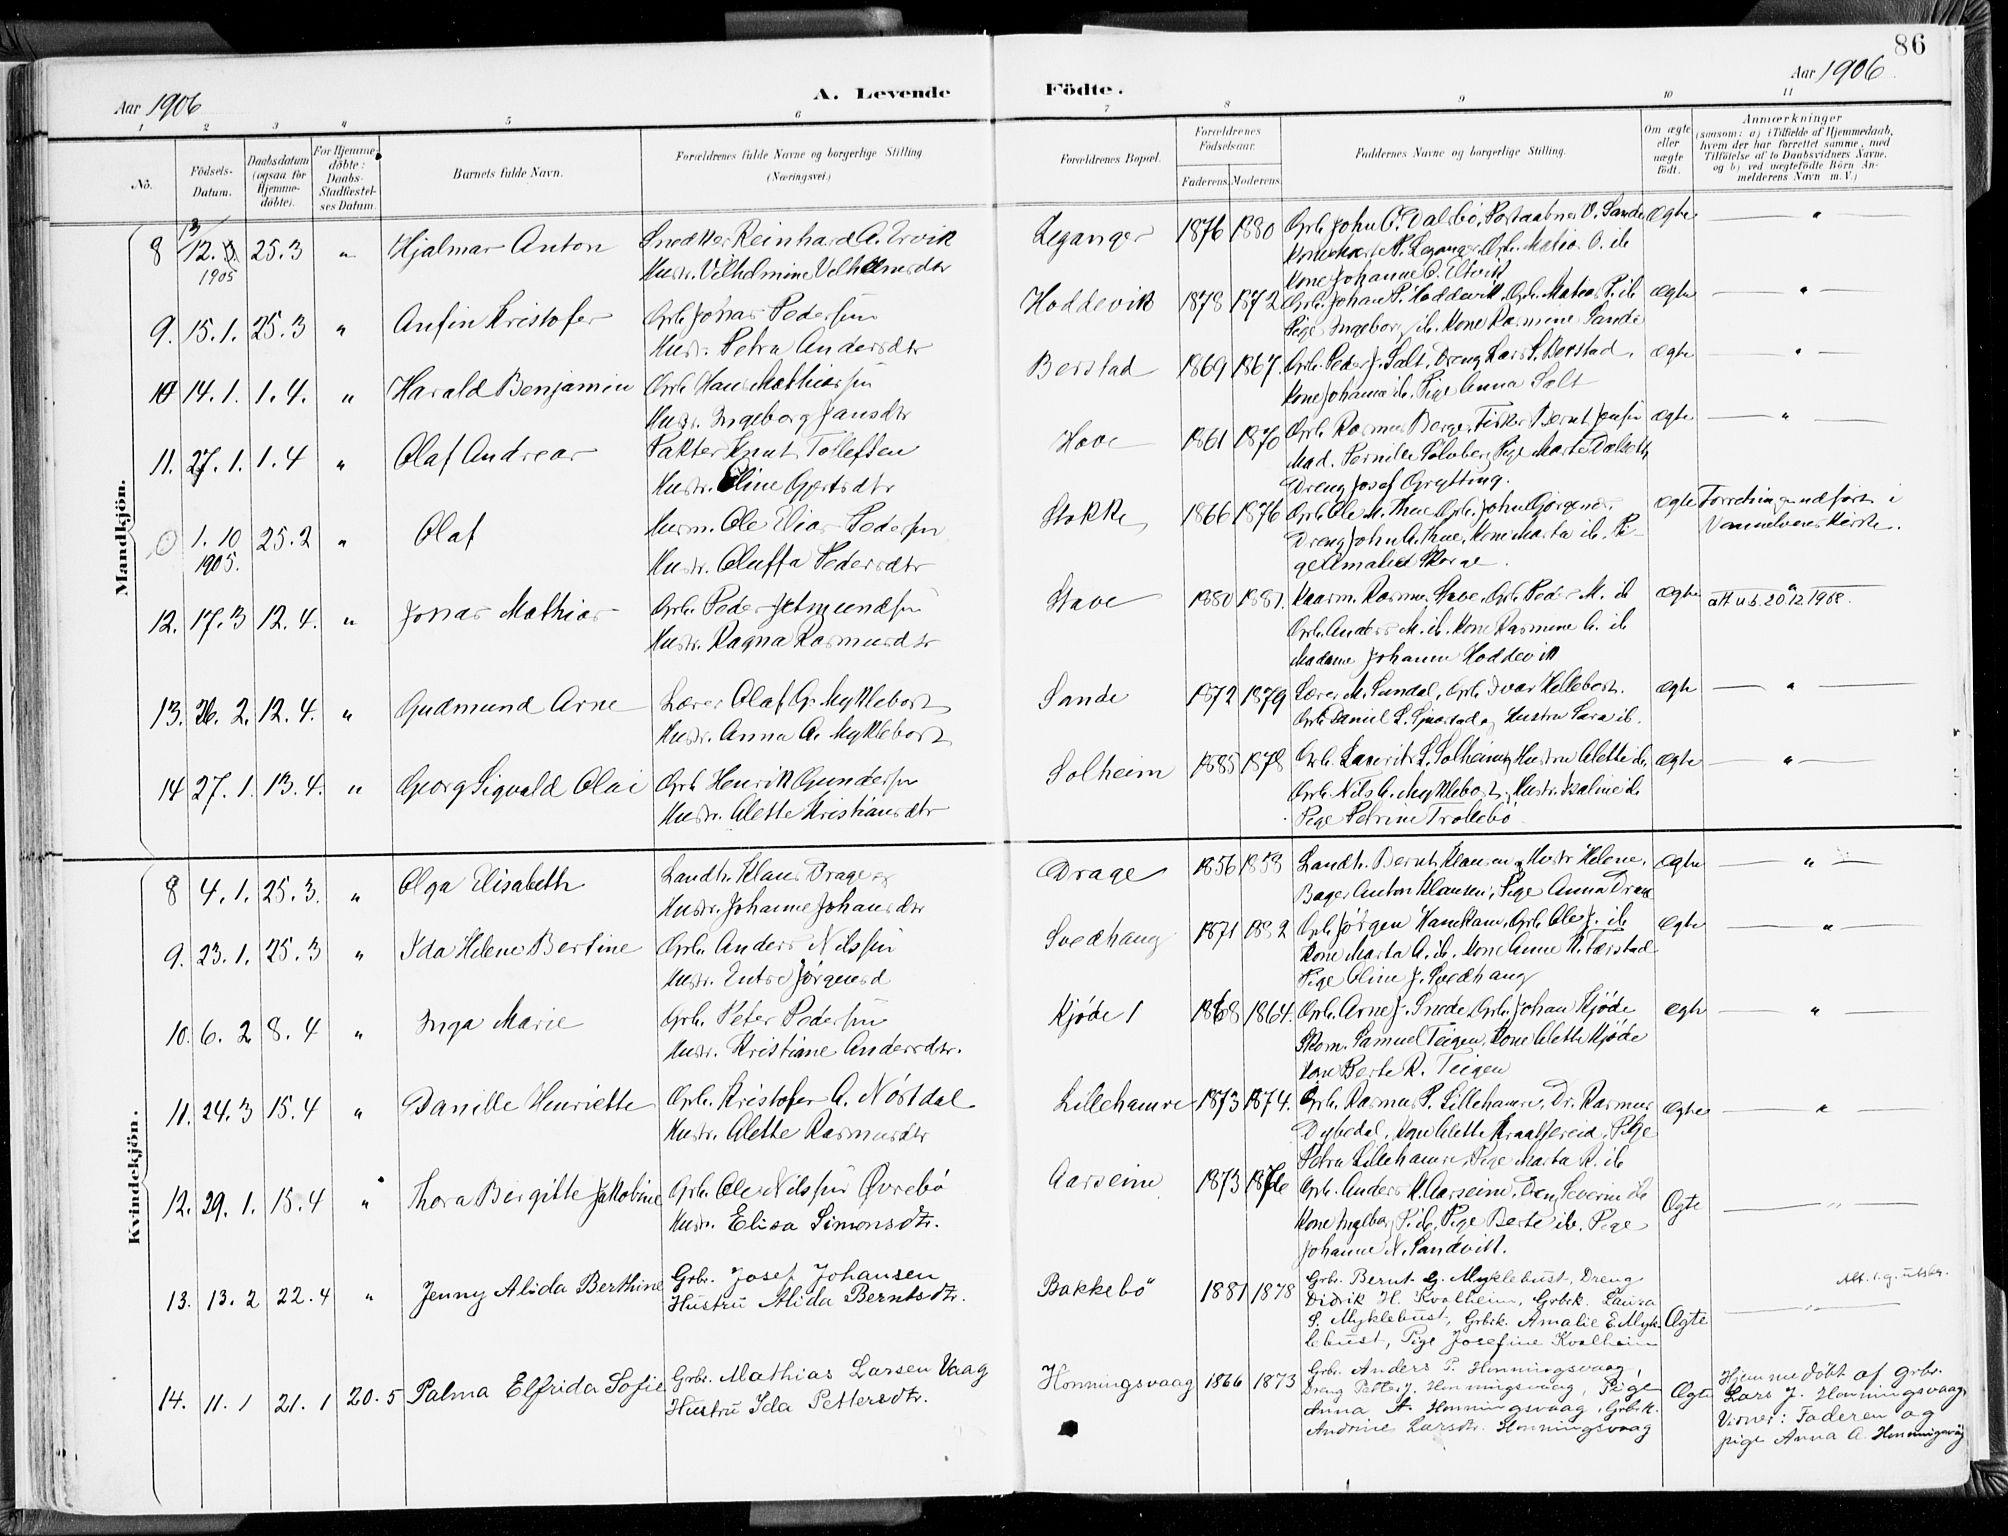 86
Aar 1906
A. Levende Födte.
Aar 1906
1 2 3 4 5 6 7 8 9 10 11
No.
Födsels-Datum.
Daabsdatum (ogsaa for Hjemme-döbte).
For Hjemme-döbte: Daabs-Stadfæstel-ses Datum.
Barnets fulde Navn.
Forældrenes fulde Navne og borgerlige Stilling (Næringsvei.)
Forældrenes Bopæl.
Forældrenes Födselsaar.
Faderens. Moderens.
Faddernes Navne og borgerlige Stilling.
Om ægte eller uægte födt.
Anmærkninger
(saasom: a) i Tilfælde af Hjemmedaab, hvem der har forrettet samme, med Tilföielse af to Daabsvidners Navne, og b) ved uægtefödte Börn Anmelderens Navn m. V.)
Mandkjön.
8 12. 1905 25.3 " Hjalmar Anton
Snedker Reinhard A. Ervik
Hustr. Vilhelmine Vilhelmsdtr
Leganger 1876 1880 Grb. John O. Dalsbö, Postaabner O. Sande
Leganger, Grb. Matias O. ib.
Kone Johanne O. Ervik
Ægte "
9. 15.1. 25.3 " Anfin Kristofer
Grb. Jonas Pedersen
Hustr. Petra Andersdtr
Hoddevik 1878 1872 Grb. Johan P. Hoddevik, Grb. Matias P. ib
Pige Ingeborg ib. Kone Rasmine Sande
ægte "
10 14.1. 1.4. " Harald Benjamin
Grb. Hans Mathiassen
Hustr. Ingeborg Jansdtr
Berstad 1869 1867. Grb. Peder J. Salt, Dreng Lars S. Berstad,
Kone Johanna ib. Pige Anna Salt
ægte "
11. 27.1. 1.4 " Olaf Andreas
Pakter Knut Tollefsen
Hustr. Eline Gjertsdtr
Hove 1861 1870 Grb. Rasmus Berge, Fisker Bernt Jensen
Mad. Pernille Solvberg, Pige Marte Dalsbö,
Dreng Josef Grytting.
ægte "
0 1.10 1905. 25.2 " Olaf
Husm. Ole Elias Pedersen
Hustr. Oluffa Pedersdtr
Stokke 1866 1876 Grb. Ole M. Thue, Grb. John
Dreng John A. Thue, Kone Marta ib. Pi-
ge Amalie Skorge.
ægte Forretningen udført i
Vanelvens Kirke.
12. 17.3 12.4. " Jonas Mathias
Grb. Peder Jetmundsen
Hustr. Ragna Rasmusdtr
Stave 1880 1881. Kaarm. Rasmus Stave, Grb. Peder M. ib
Grb. Anders M. ib. Kone Rasmine A. ib
Madame Johanne Hoddevik
ægte att u.s. 20/12 1908.
13. 26.2. 12.4. " Gudmund Arne
Lærer Olaf G. Myklebost
Hustr. Anna A. Myklebost
Sande 1872 1879 Lærer M. Sundal, Grb. Ivar Hellebost.
Grb. Daniel L. Sjaastad og Hustru Sara ib.
ægte "
14 27.1. 13.4. " Georg Sigvald Olai
Grb. Henrik Gundersen
Hustr. Alette Kristiansdtr
Solheim 1885 1878 Grb. Laurits L. Solheim, Hustru Alette ib,
Grb. Nils A. Myklebost, Hustr. ib
Pige Petrine Trollebö
ægte "
Kvindekjön.
8 4.1. 25.3. " Olga Elisabeth
Landh. Klaus Drage og
Hustr. Johanne Johansdtr
Drage 1856 1853 Landh. Bernt Klausen, Hustr. Helene,
Bager Anton Klausen, Pige Anna Drage
ægte "
9. 23.1. 25.3 " Ida Helene Bertine
Grb. Anders Nilssen
Hustr. Entre Jörgensd
Svedhaug 1871 1882 Grb. Jörgen Hamnam, Grb. Ole J. ib
Kone Marta A. ib. Kone Anne N. Færstad
Pige Oline J. Svedhaug
ægte "
10. 6.2 8.4 " Inga Marie
Grb. Peter Pedersen
Hustr. Kristiane Andersdtr.
Kjöde 1 1868 1864. Grb. Arne J. Frøde, Grb. Johan Kjöde
Skom. Samuel Teigen, Kone Alette Kjöde
Kone Berte R. Teigen
ægte "
11. 24.3 15.4 " Danille Henriette
Grb. Kristofer A. Nörtdal
Hustr. Alette Rasmusdtr
Lillehamre 1873 1874. Grb. Rasmus P. Lillehamre, Dr. Rasmus
Dybedal, Kone Alette Kraakereid, Pige
Petra Lillehamre, Pige Marta R. ib
ægte "
12. 29.1. 15.4 " Thora Bergitte Jakobine
Grb. Ole Nilssen Øvrebö
Hustr. Elisa Simonsdtr.
Aarseim 1873 1876 Grb. Anders K. Aarseim, Dreng Severin ib
Kone Ingeborg P. ib, Pige Berte ib. Pige
Johanne N. Sandvik.
Ægte "
13. 13.2 22.4 " Jenny Alida Berthine
Grbr. Josef Johansen
Hustru Alida Berntsdtr.
Bakkebö 1881 1878 Grbr. Bernt G. Myklebust, Dreng
Didrik H. Kvalheim, Grbrk. Laura
S. Myklebust, Grbrk. Amalie E Myk-
lebust, Pige Josefine Kvalheim
Ægte Att. s.g. utstr.
14. 11.1 21.1 20.5 Palma Elfrida Sofie
Grbr. Mathias Larsen Vaag
Hustru Ida Pettersdtr.
Honningsvaag 1866 1873 Grbr. Anders P. Honningsvaag,
Dreng Petter J. Honningsvaag, Pige
Anna A. Honningsvaag, Grbrk.
Andrine Larsdtr. Honningsvaag
Ægte Hjemmedöbt af grbr.
Lars J. Honningsvaag
Vidner: Faderen og
pige Anna A. Honningsvåg